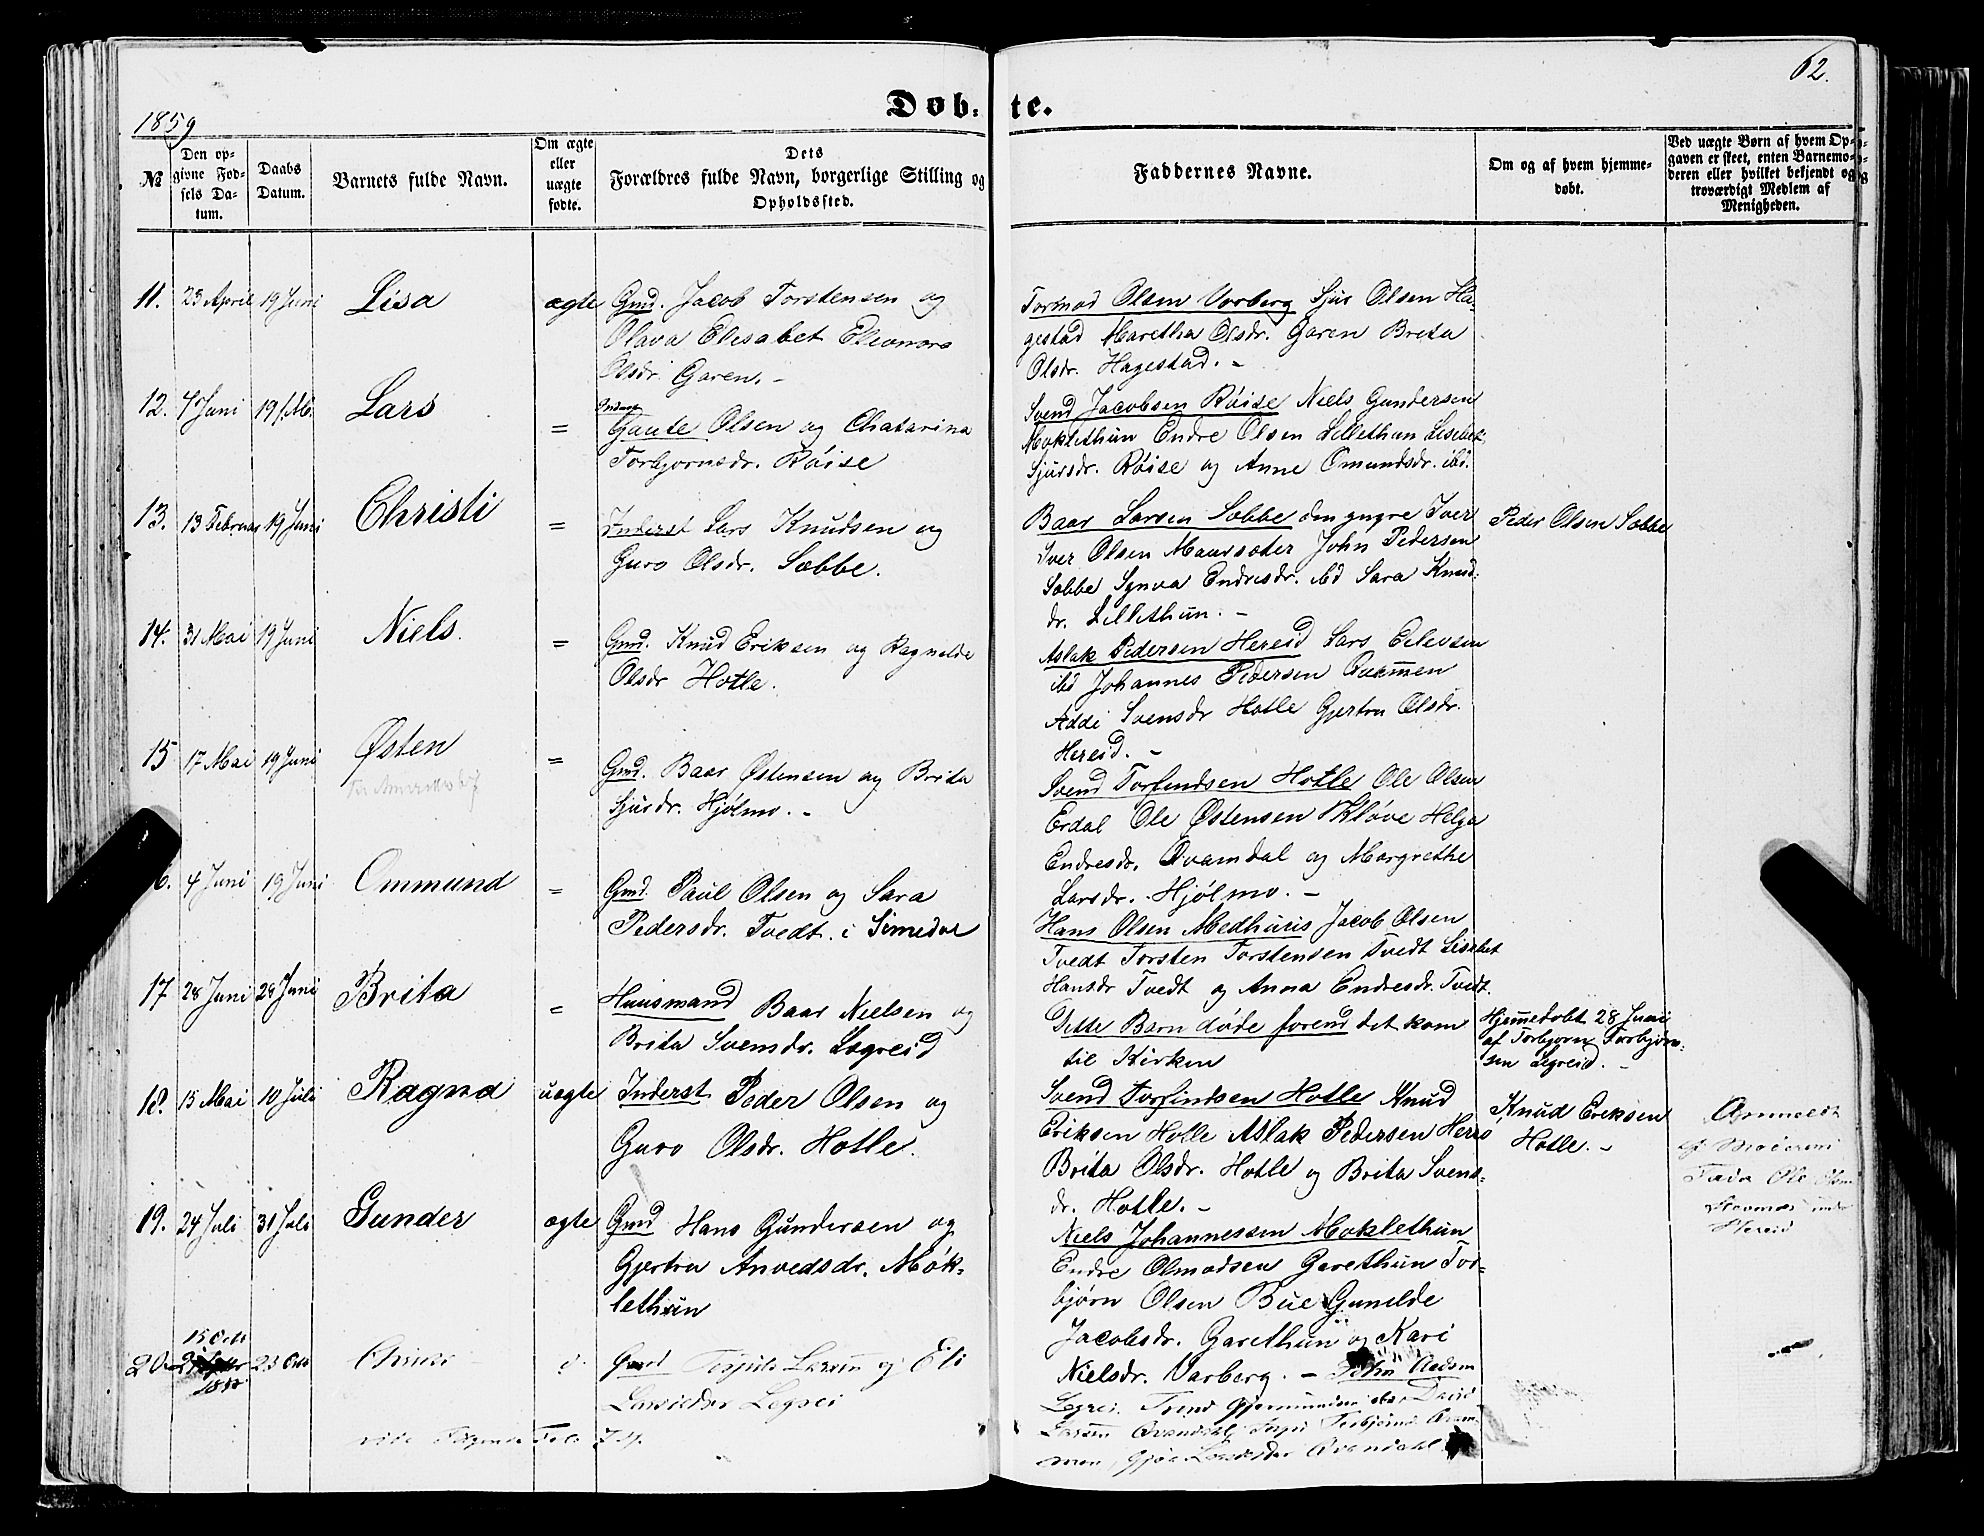 62.
Døb-te.
1859
№ Den opgivne Fødsels Datum. Daabs Datum. Barnets fulde Navn. Om ægte eller uægte fødte. Dets Forældres fulde Navn, borgerlige Stilling og Opholdssted. Faddernes Navne. Om og af hvem hjemmedøbt. Ved uægte Børn af hvem Opgaven er skeet, enten Barnemoderen eller hvilket bekjendt og troværdigt Medlem af Menigheden.
11. 23 April 19 Juni Lisa ægte Gmd. Jacob Torstensen og
Olava Elisabet Eleonora
Olsdr. Garen. -
Tormod Olsen Vorberg Sjur Olsen Ha-
gestad Maretha Olsdr. Garen Brita
Olsdr. Hagestad. -
12. 7 Juni 19 Lars =
Gaute Olsen og Chatarina
Torbjornsdr. Röise
Svend Jacobsen Röise Niels Gundersen
Moklethun Endre Olsen Lillethun Lisebet
Sjursdr. Röise og Anne Omundsdr. ibd.
13. 13 Februar 19 Juni Christi = Inderst Lars Knudsen og
Guro Olsdr. Sæbbe.
Baar Larsen Sæbbe den yngre Iver
Iver Olsen Maursæter John Pedersen
Sæbbe Synva Endresdr. ibd Sara Knud-
dr. Lillethun. -
Peder Olsen Sæbbe
14. 31 Mai 19 Juni Niels. = Gmd. Knud Eriksen og Ragnilde
Olsdr Hotle.
Aslak Pedersen Hereid Lars Eilevsen
ibd Johannes Pedersen Quammen
Addi Svensdr Hotle Gjertru Olsdr.
Hereid. -
15 17 Mai 19 Juni Østen = Gmd. Baar Østensen og Brita
Sjursdr. Hjölmo. -
Svend Torfindsen Hotle Ole Olsen
Erdal Ole Østensen Klöve Helga
Endresdr. Qvamdal og Margrethe
Larsdr. Hjölmo. -
6. 4 Juni 19 Juni Ommund = Gmd. Paul Olsen og Sara
Pedersdr. Tvedt. i Simedal
Hans Olsen Medhuus Jacob Olsen
Tvedt Torsten Torstensen Tvedt Lisabet
Hansdr Tvedt og Anna Endresdr. Tvedt.
17 28 Juni 28 Juni Brita = Huusmand Baar Nielsen og
Brita Svensdr. Lægreid
Dette Barn döde forend det kom
til Kirken
Hjemedobt 28 Juni
af Torbjorn Torbjörn-
sen Legreid. -
18. 15 Mai 10 Juli Ragna uægte Inderst Peder Olsen og
Guro Olsdr. Hotle.
Svend Torfindsen Hotle Knud
Eriksen Hotle Aslak Pedersen Herei
Brita Olsdr. Hotle og Brita Svens-
dr. Hotle. -
Knud Eriksen
Hotle. -
Anmeldt
af Moderen
Ole
under
Hereid
19. 24 Juli 31 Juli Gunder ægte Gmd Hans Gundersen og
Gjertru Anvedsdr. Mök-
lethun
Niels Johannessen Moklethun
Endre Olmodsen Garethun Tor-
björn Olsen Bue Gunilde
Jacobsdr. Garethun og Kari
Nielsdr. Varberg. -
20 15 Oct 23 Oct Gmd Larsen og Eli
Larsdr Legrei
Legrei.
Larsen Qvandahl Torbjörnsd.